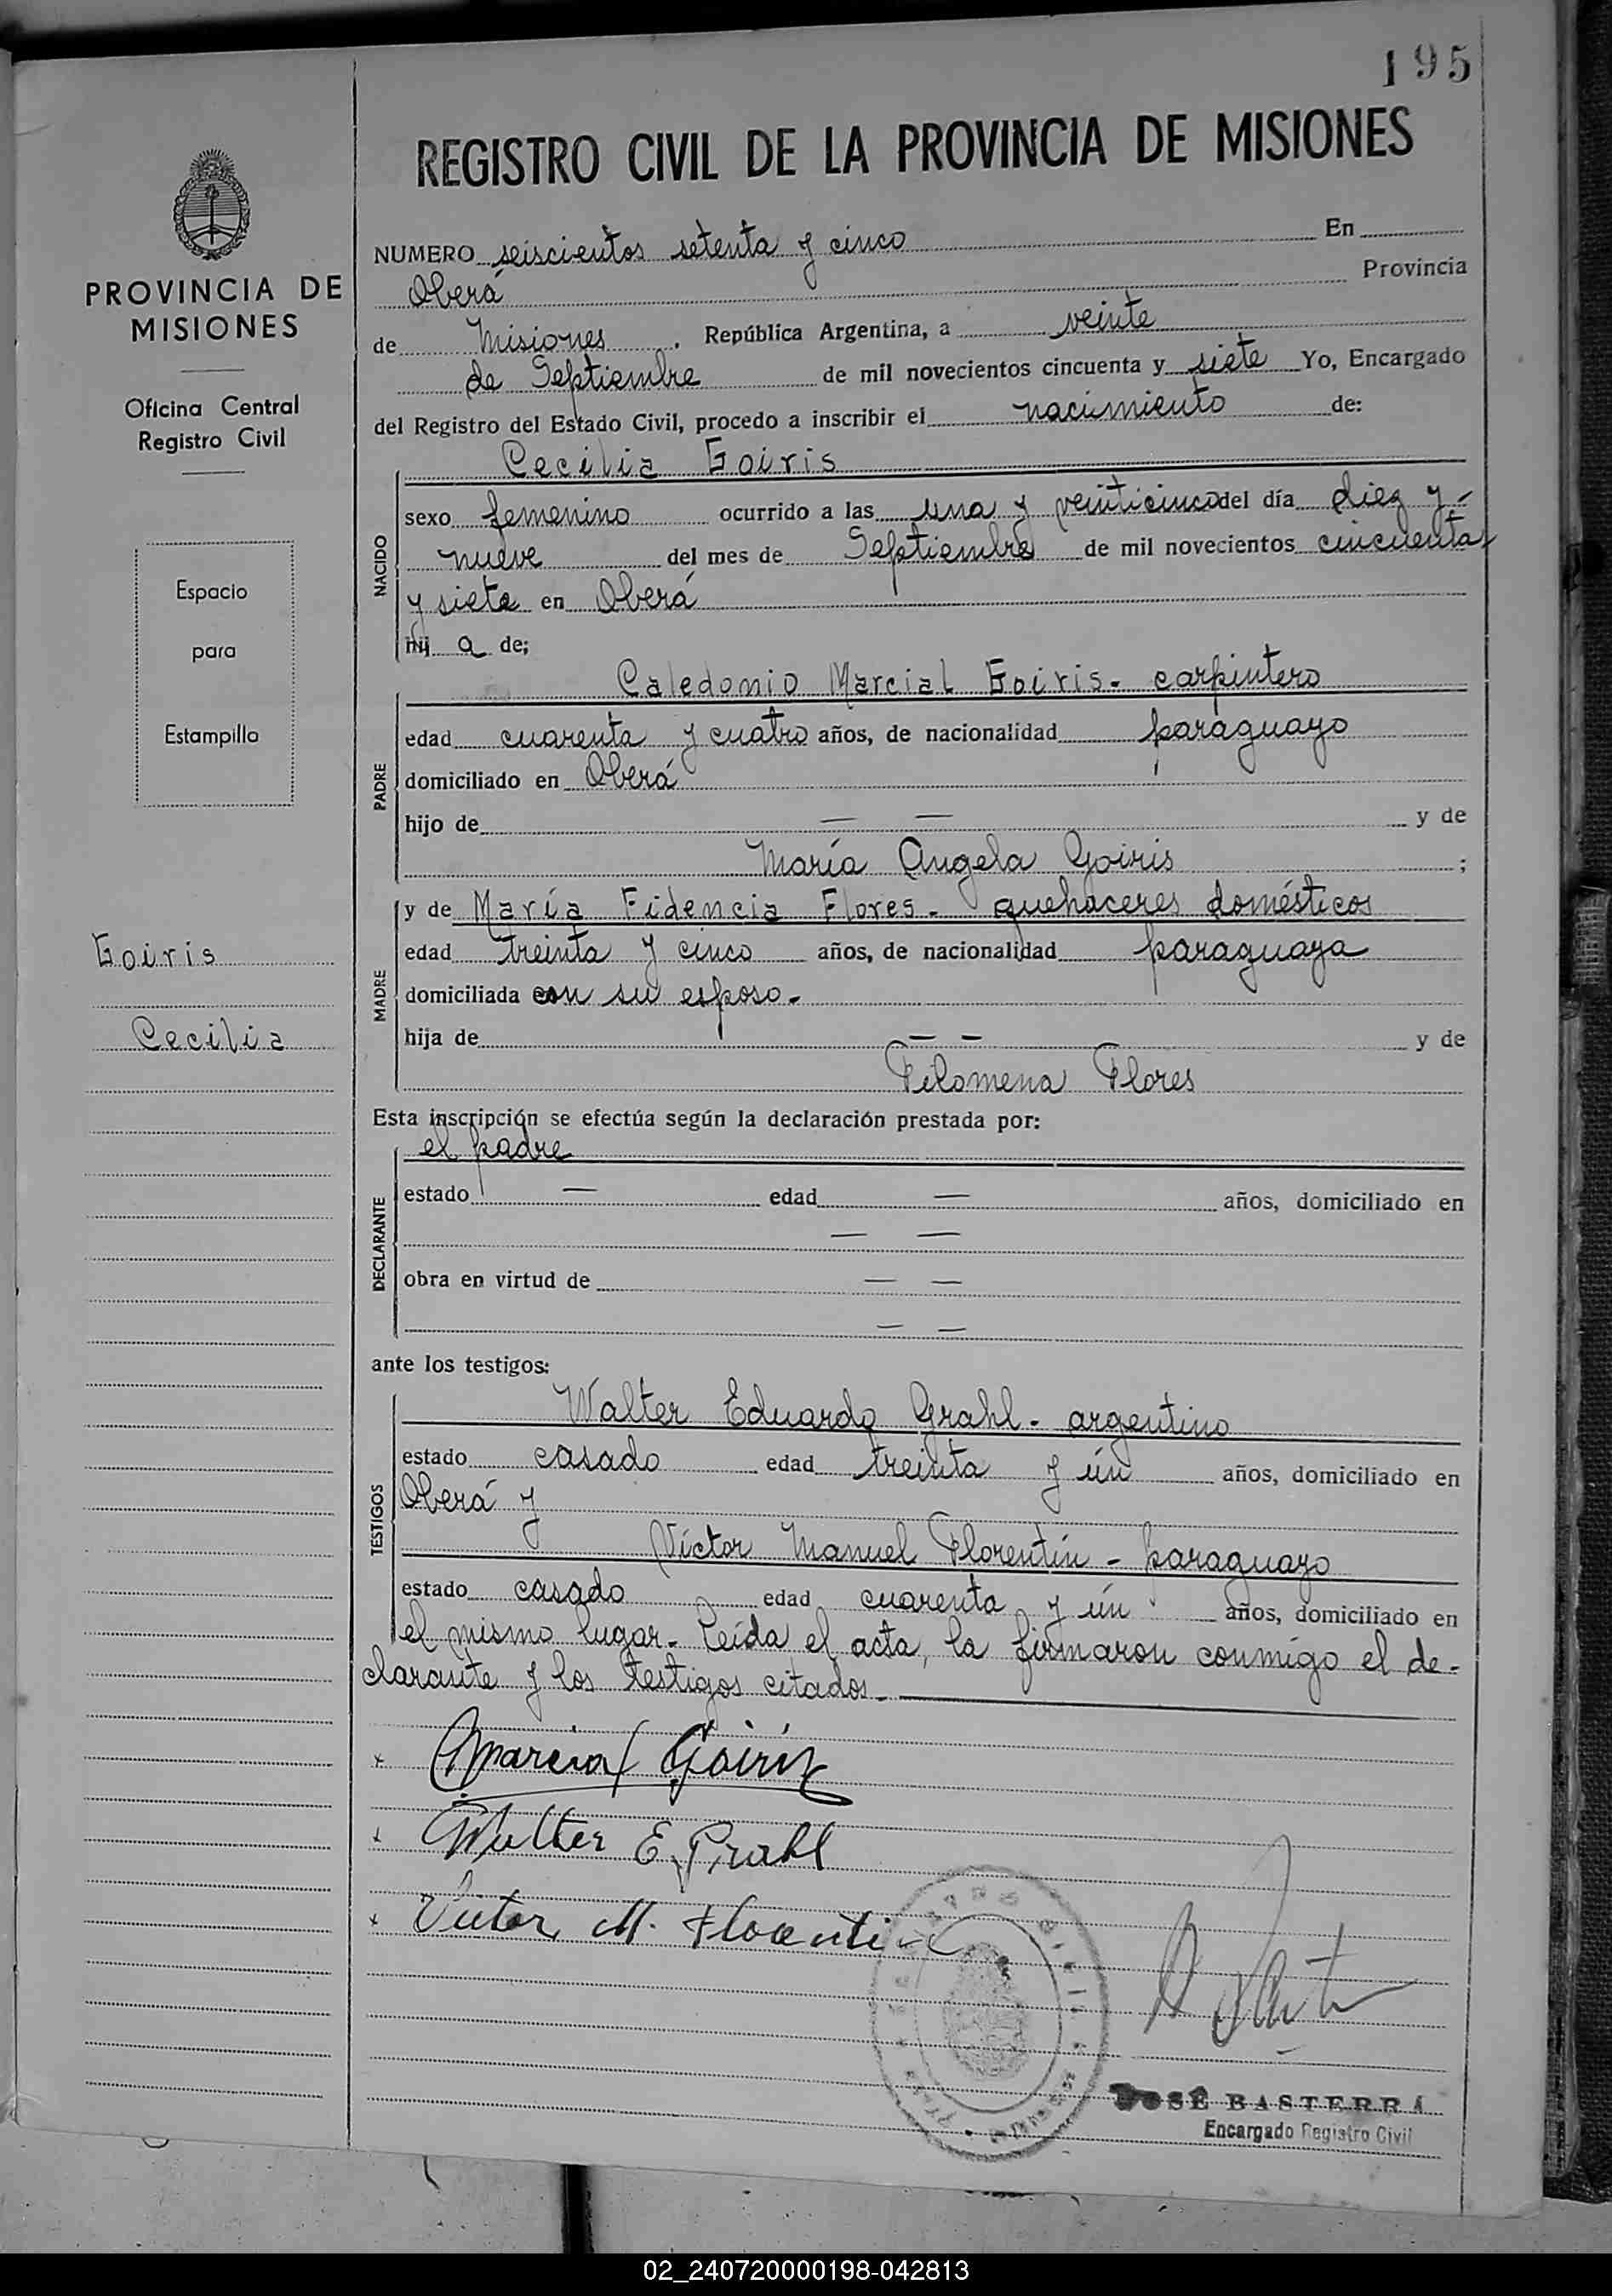 195
REGISTRO CIVIL DE LA PROVINCIA DE MISIONES
PROVINCIA DE
MISIONES
Oficina Central
Registro Civil
Espacio
para
Estampilla
Goiris
Cecilia
NUMERO seiscientos setenta y cinco En
Oberá Provincia
de Misiones, República Argentina, a veinte
de Septiembre de mil novecientos cincuenta y siete Yo, Encargado
del Registro del Estado Civil, procedo a inscribir el nacimiento de:
Cecilia Goiris
NACIDO
sexo femenino ocurrido a las una y veinticinco del día diez y
nueve del mes de Septiembre de mil novecientos cincuenta
y siete en Oberá
hij a de;
Caledonio Marcial Goiris - carpintero
PADRE
edad cuarenta y cuatro años, de nacionalidad paraguayo
domiciliado en Oberá
hijo de — — y de
María Angela Goiris ;
y de María Fidencia Flores - quehaceres domésticos
MADRE
edad treinta y cinco años, de nacionalidad paraguaya
domiciliada con su esposo.-
hija de — — y de
Filomena Flores
Esta inscripción se efectúa según la declaración prestada por:
el padre
DECLARANTE
estado — edad — años, domiciliado en
— —
obra en virtud de — —
— —
ante los testigos:
Walter Eduardo Grahl - argentino
TESTIGOS
estado casado edad treinta y ún años, domiciliado en
Oberá y
Víctor Manuel Florentín - paraguayo
estado casado edad cuarenta y ún años, domiciliado en
el mismo lugar. Leída el acta, la firmaron conmigo el de-
clarante y los testigos citados.-
x Marcial Goiris
x Walter E. Grahl
x Victor M. Florentin
JOSÉ BASTERRA
Encargado Registro Civil
02_240720000198-042813